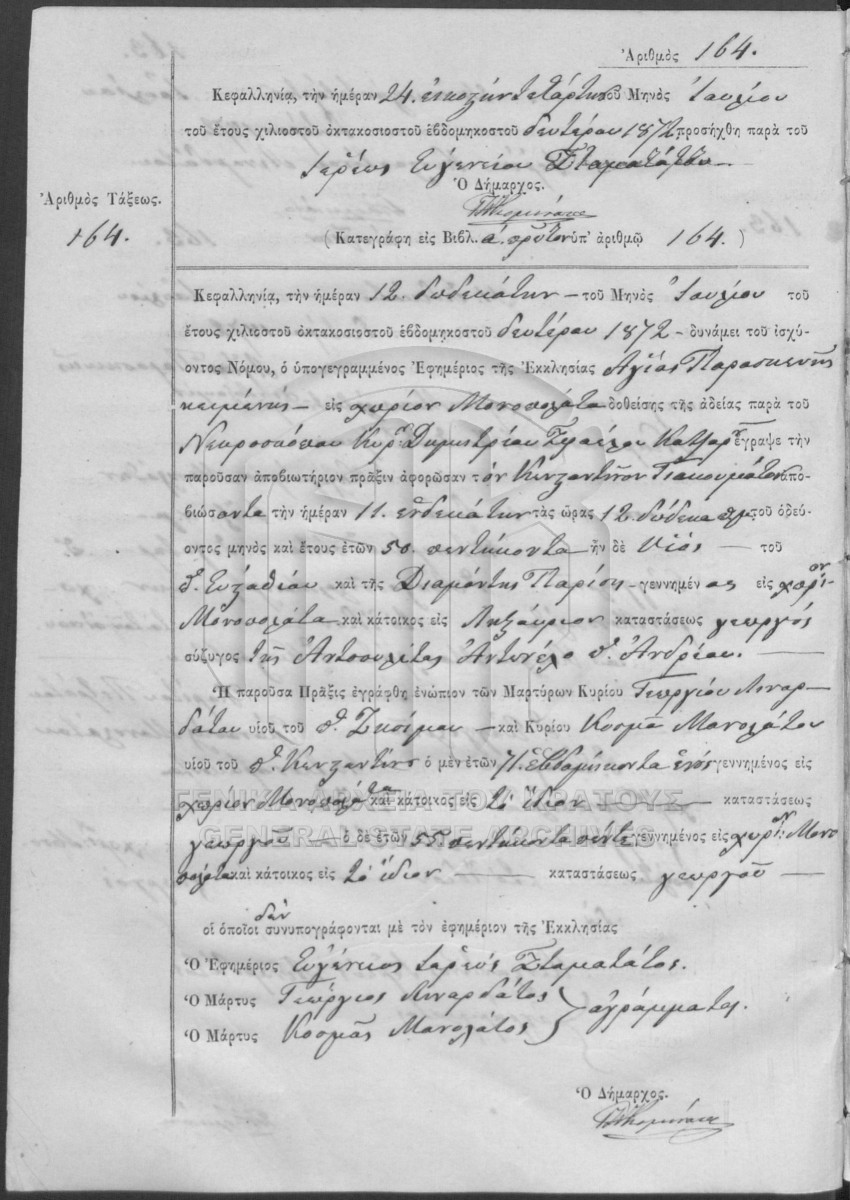 Ἀριθμὸς 164.
Κεφαλληνίᾳ, τὴν ἡμέραν 24. εἰκοστὴν τετάρτην τοῦ Μηνὸς Ἰουλίου
τοῦ ἔτους χιλιοστοῦ ὀκτακοσιοστοῦ ἑβδομηκοστοῦ δευτέρου 1872 προσήχθη παρὰ τοῦ
Ἱερέως Εὐγενείου Σταματάτου
Ὁ Δήμαρχος.
Ἀριθμὸς Τάξεως.
164.
(Κατεγράφη εἰς Βιβλ. ά. πρῶτον ὑπ' ἀριθμῷ 164.)
Κεφαλληνίᾳ, τὴν ἡμέραν 12. δωδεκάτην — τοῦ Μηνὸς Ἰουλίου τοῦ
ἔτους χιλιοστοῦ ὀκτακοσιοστοῦ ἑβδομηκοστοῦ δευτέρου 1872 — δυνάμει τοῦ ἰσχύ-
οντος Νόμου, ὁ ὑπογεγραμμένος Ἐφημέριος τῆς Ἐκκλησίας Ἁγίας Παρασκευῆς
κειμένης — εἰς χωρίον Μονοπολάτα δοθείσης τῆς ἀδείας παρὰ τοῦ
Νεκροσκόπου Κυρ. Δημητρίου ἔγραψε τὴν
παροῦσαν ἀποβιωτήριον πρᾶξιν ἀφορῶσαν τὸν Κωνσταντῖνον Γιακουμάτον ἀπο-
βιώσαντα τὴν ἡμέραν 11. ἑνδεκάτην τὰς ὥρας 12. δώδεκα τοῦ ὁδεύ-
οντος μηνὸς καὶ ἔτους ἐτῶν 50. πεντήκοντα ἦν δὲ υἱὸς — τοῦ
π. Εὐσταθίου καὶ τῆς Διαμάντης Παρίση — γεννημένος εἰς χωρίον
Μονοπολάτα καὶ κάτοικος εἰς Ληξούριον καταστάσεως γεωργὸς
σύζυγος τῆς Ἀντζουλέτας Ἀντωνέλο π. Ἀνδρέου. —
Ἡ παροῦσα Πρᾶξις ἐγράφθη ἐνώπιον τῶν Μαρτύρων Κυρίου Γεωργίου Λιναρ-
δάτου υἱοῦ τοῦ π. Ζησίμου — καὶ Κυρίου Κοσμᾶ Μανολάτου
υἱοῦ τοῦ π. Κωνσταντίνου ὁ μὲν ἐτῶν 71. ἑβδομήκοντα ἑνὸς γεννημένος εἰς
χωρίον Μονοπολάτα καὶ κάτοικος εἰς τὸ ἴδιον — καταστάσεως
γεωργοῦ — ὁ δὲ ἐτῶν 55 πεντήκοντα πέντε γεννημένος εἰς χωρίον Μονο
πολάτα καὶ κάτοικος εἰς τὸ ἴδιον — καταστάσεως γεωργοῦ —
οἱ ὁποῖοι δὲν συνυπογράφονται μὲ τὸν ἐφημέριον τῆς Ἐκκλησίας
Ὁ Ἐφημέριος Εὐγένειος Ἱερεὺς Σταματάτος.
Ὁ Μάρτυς Γεώργιος Λιναρδάτος
Ὁ Μάρτυς Κοσμᾶς Μανολάτος } ἀγράμματοι.
Ὁ Δήμαρχος.
ΓΕΝΙΚΑ ΑΡΧΕΙΑ ΤΟΥ ΚΡΑΤΟΥΣ
GENERAL STATE ARCHIVES